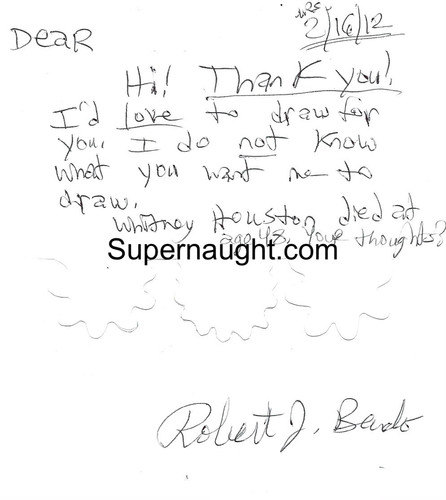 2/16/12
Dear
Hi! Thank you!
I'd love to draw for
you. I do not know
what you want me to
draw.
Whitney Houston died at
age 48. Your thoughts?
Supernaught.com
Robert J.